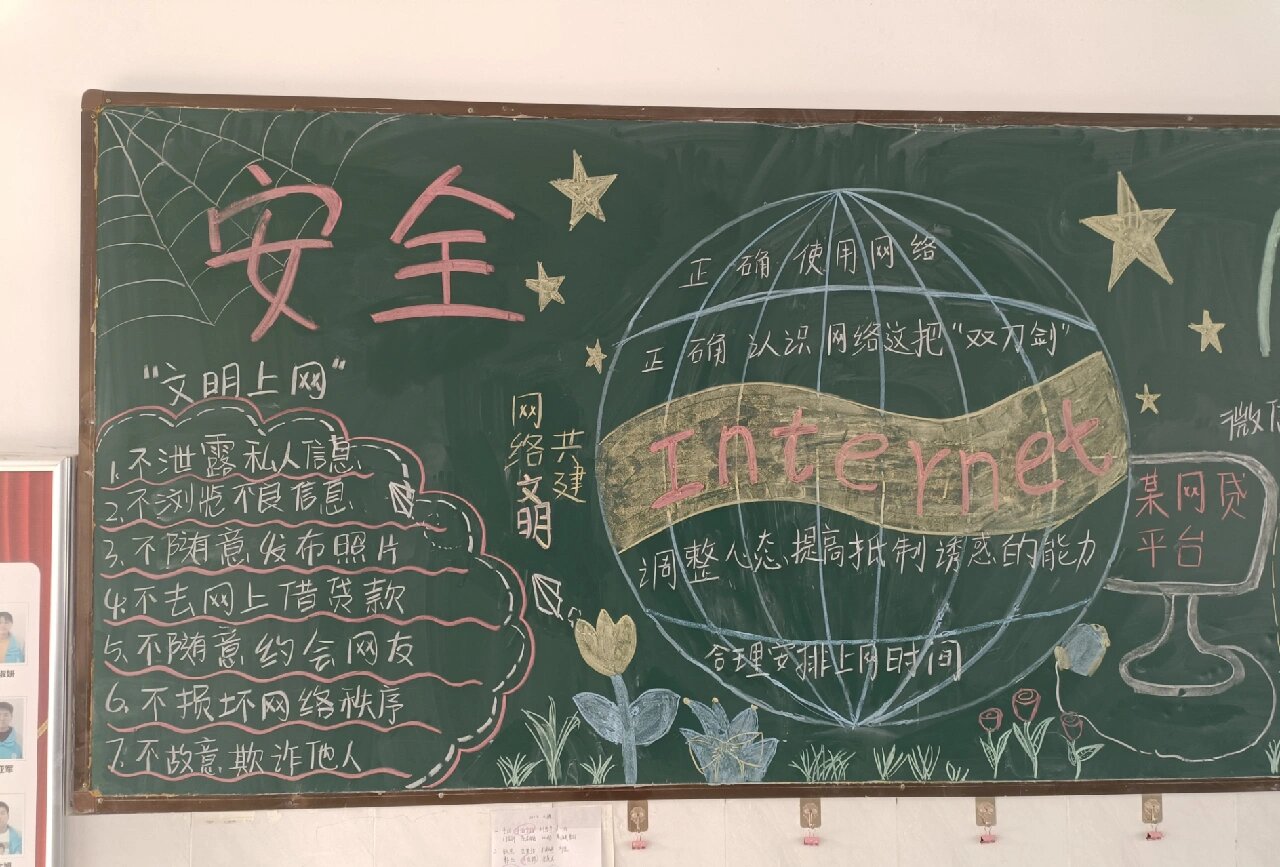 安全
"文明上网"
1.不泄露私人信息
2.不浏览不良信息
3.不随意发布照片
4.不去网上借贷款
5.不随意约会网友
6.不损坏网络秩序
7.不故意欺诈他人
共建
网络文明
正确使用网络
正确认识网络这把"双刀剑"
Internet
调整心态提高抵制诱惑的能力
合理安排上网时间
微信
某网贷
平台